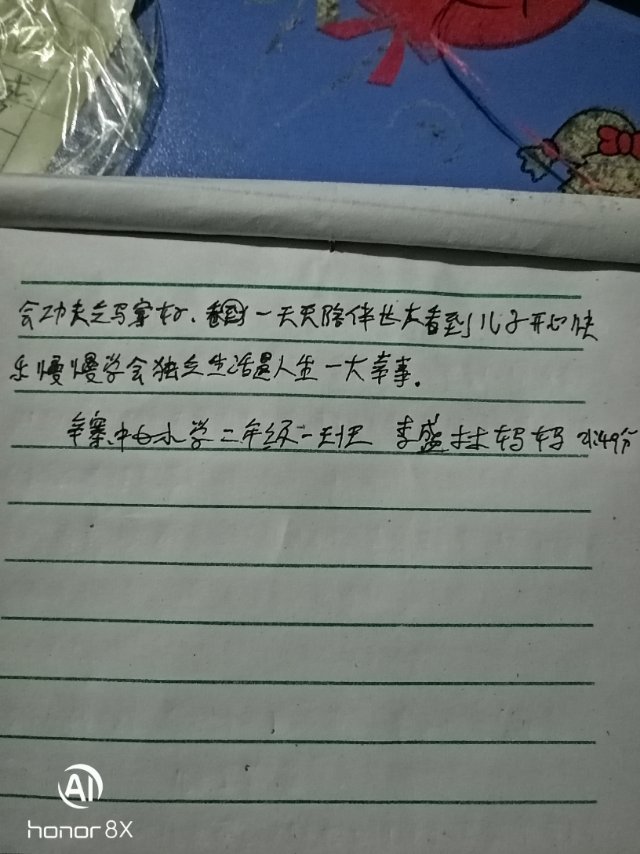 会功夫之写拿好. 一天天陪伴长大看到儿子开心快
乐慢慢学会独立生活是人生一大幸事.
辛寨中心小学二年级一班 李盛林妈妈
AI
honor 8X